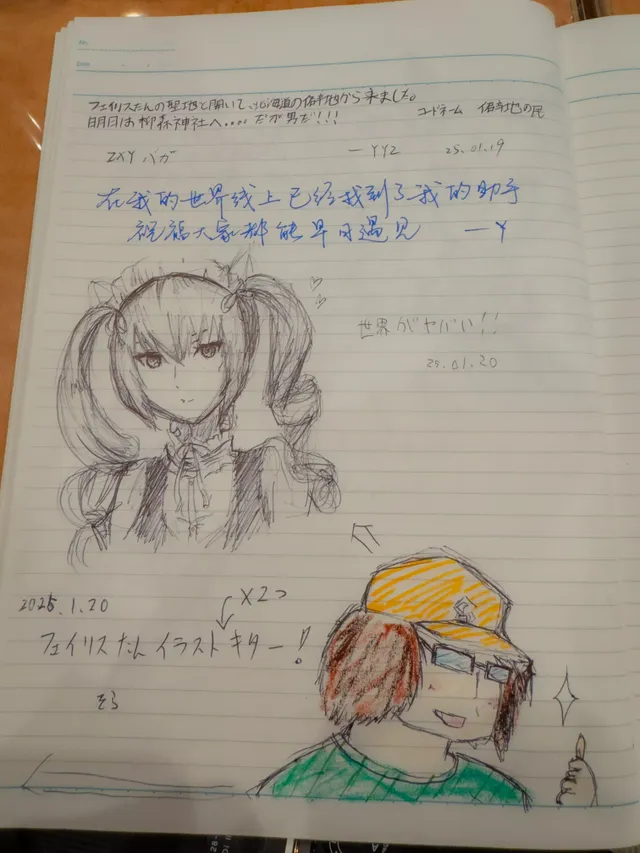 フェイリスたんの聖地と聞いて、
から来ました。
明日は柳森神社へ.... だが男だ!!!
コードネーム
の民
ZXY バガ
— YYZ
25.01.19
在我的世界线上已经找到了我的助手
祝福大家都能早日遇见 —Y
世界がヤバい!!
25.01.20
2025.1.20
×2つ
フェイリスたん イラスト キター!
そら